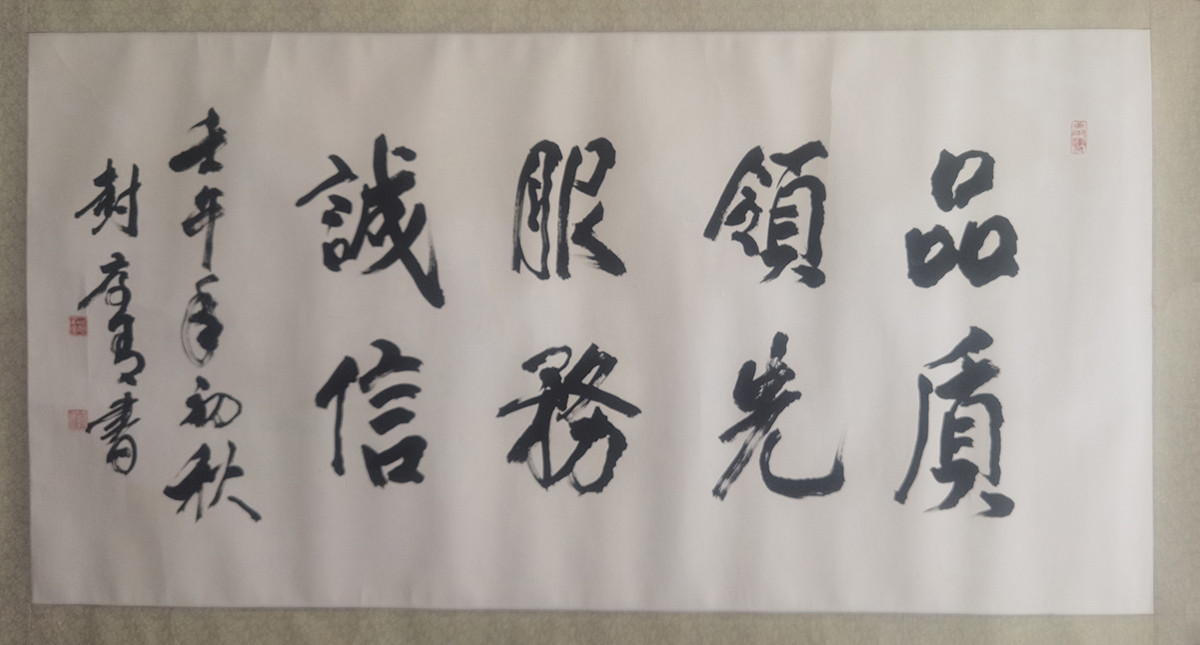 品质
領先
服務
誠信
壬午年初秋
封 書